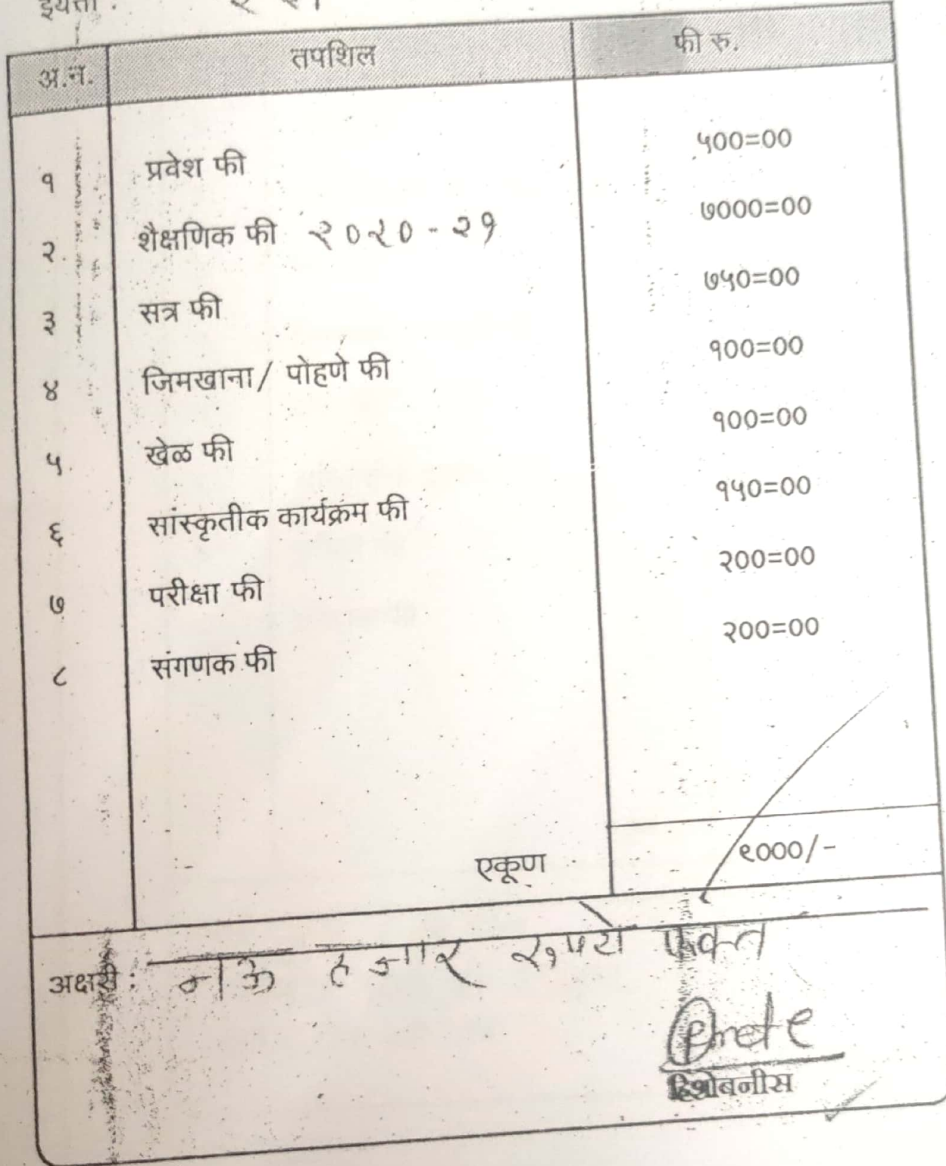 इयत्ता :
अ.न. तपशिल फी रु.
१ प्रवेश फी ५००=००
२. शैक्षणिक फी २०२०-२१ ७०००=००
३ सत्र फी ७५०=००
४ जिमखाना/ पोहणे फी १००=००
५. खेळ फी १००=००
६ सांस्कृतीक कार्यक्रम फी १५०=००
७ परीक्षा फी २००=००
८ संगणक फी २००=००
एकूण ९०००/-
अक्षरी : नऊ हजार रुपये फक्त
हिशोबनीस